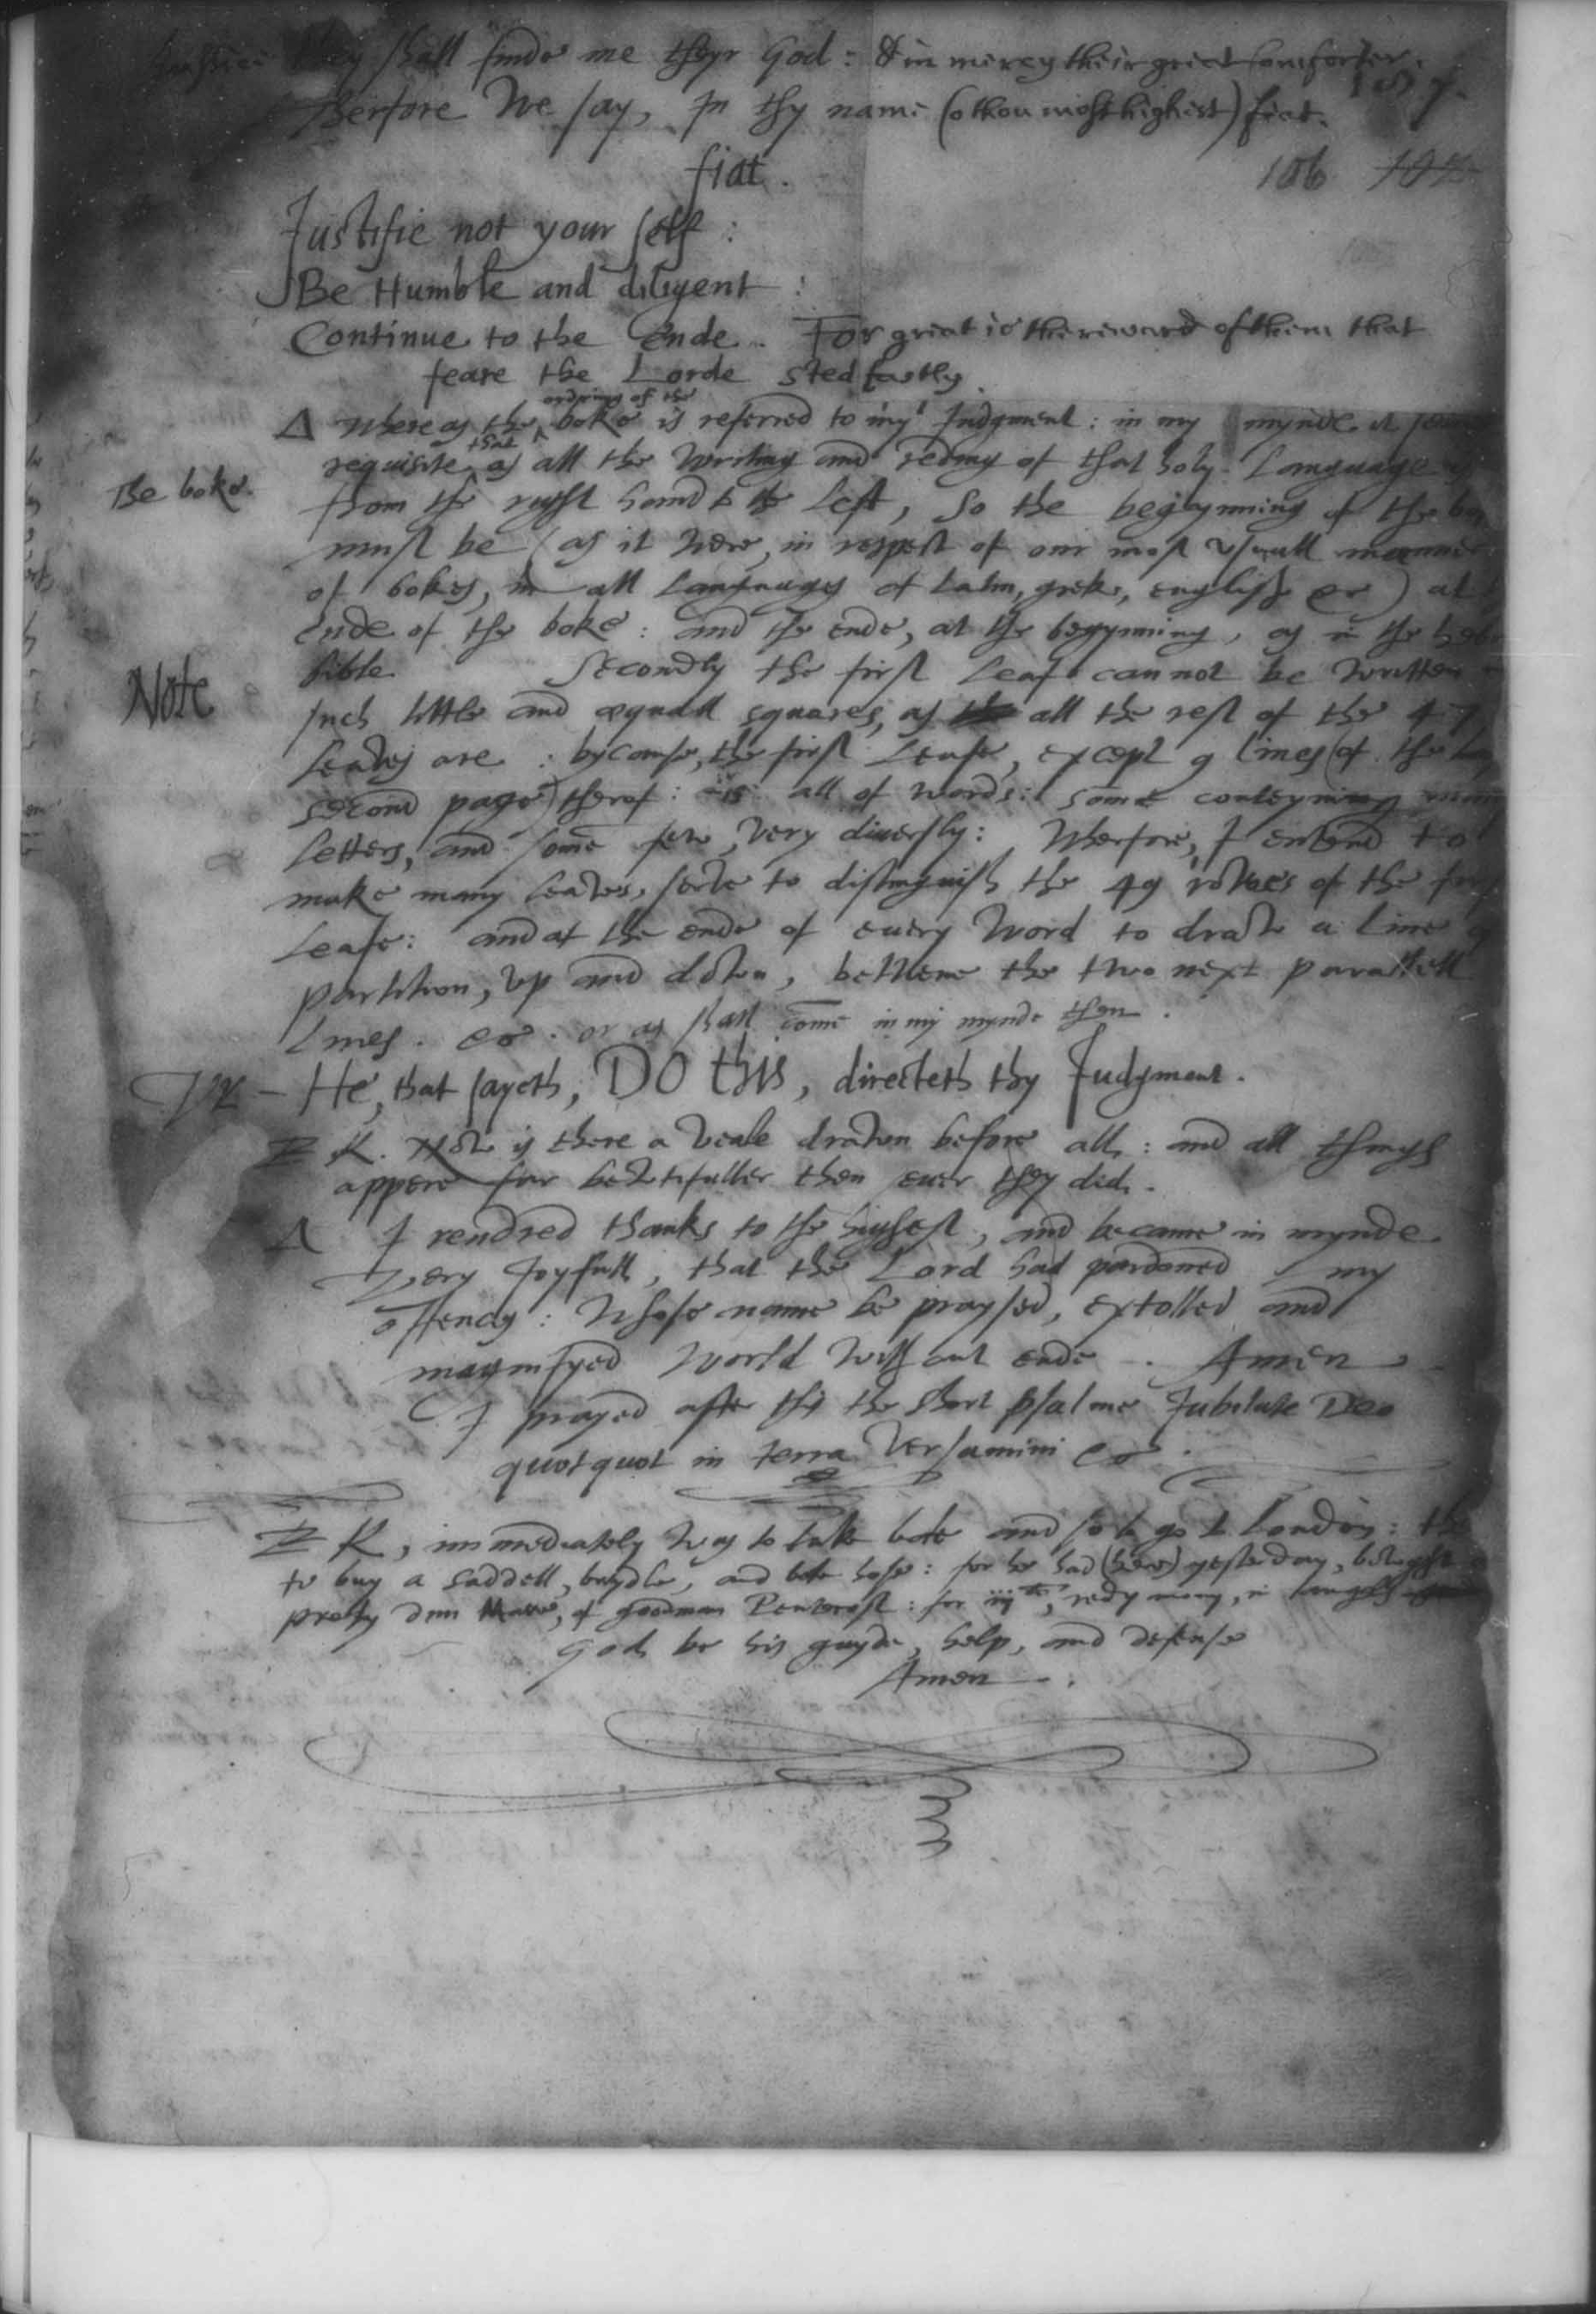 they shall finde me theyr God: & in mercy their great comforter.
Therfore We say, In thy name (o thou most highest) fiat.
107.
fiat.
106 107
Justifie not your self:
Be Humble and diligent:
Continue to the Ende. For great is the reward of them that
feare the Lorde stedfastly.
ordring of the
Δ Where as the boke is referred to my Judgment: in my mynde it
that
requisite as all the Writing and reding of that holy Language
The boke.
from the right hand to the Left, So the begynning of the
must be (as it were, in respect of our most usuall manner
of bokes, in all Languages of Latin, greke, english &c) at
ende of the boke: and the ende, at the begynning, as in the
bible. Secondly the first Leaf cannot be Written
Note
such little and æquall squares, as all the rest of the 47
Leaves are: bycause, the first Leafe, except 9 lines (of the
second page) therof: is all of Words: some conteyning
Letters, and some few, very diversly: Wherfore, I entend to
make many leaves, serve to distinguish the 49 rowes of the
Leafe: and at the ende of every Word to draw a line
partition, up and down, betwene the two next parallell
lines. &c. or as shall come in my mynde then.
VR – He, that sayeth, DO this, directeth thy Judgment.
E K. Now is there a Veale drawn before all: and all things
appere far bewtifuller then ever they did.
Δ I rendred thanks to the highest, and became in mynde
Very Joyfull, that the Lord had pardoned my
offences: Whose name be praysed, extolled and
magnifyed World Without ende. Amen
I prayed after this the short psalme Jubilate Deo
quotquot in terra Versamini &c.
E K, immediately Was to take bote and so to go to London:
to buy a saddell, brydle, and bote hose: for he had (here) yesterday, bowght
prety dun Mare, of goodman Pentecost: for iij, redy mony, in
God be his guyde, help, and defense
Amen.